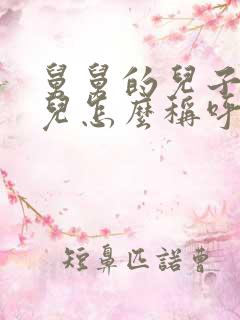 舅舅的兒子
兒怎麼稱呼
短鼻匹諾曹